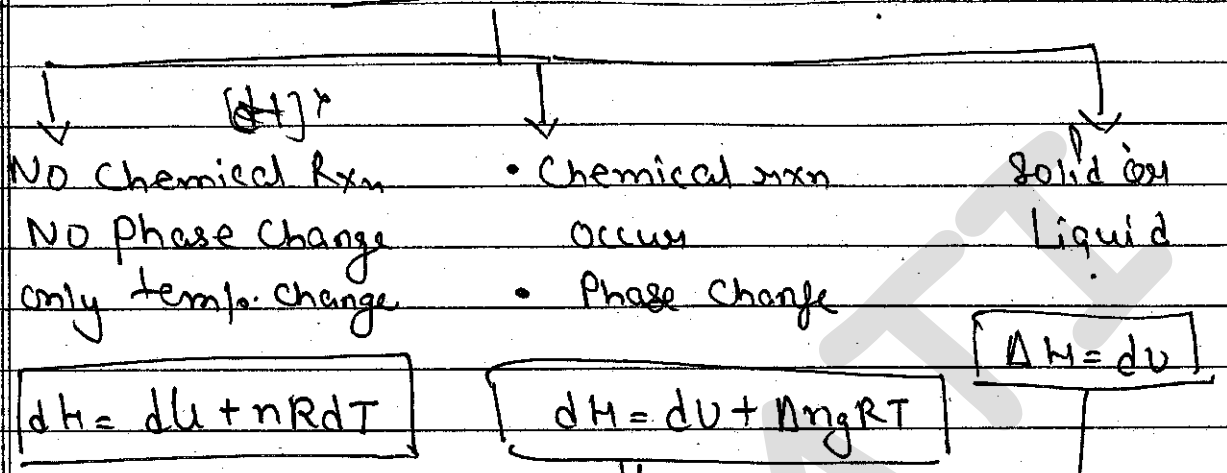 [dH]
No Chemical Rxn
No Phase Change
only temp. change
dH = dU + nRdT
• Chemical rxn
occur
• Phase Change
dH = dU + ΔngRT
Solid or
Liquid
ΔH = dU